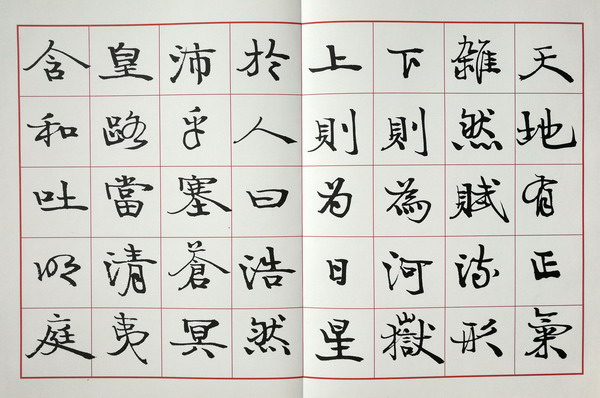 天地有正氣
雜然賦流形
下則為河嶽
上則为日星
於人曰浩然
沛乎塞蒼冥
皇路當清夷
含和吐明庭